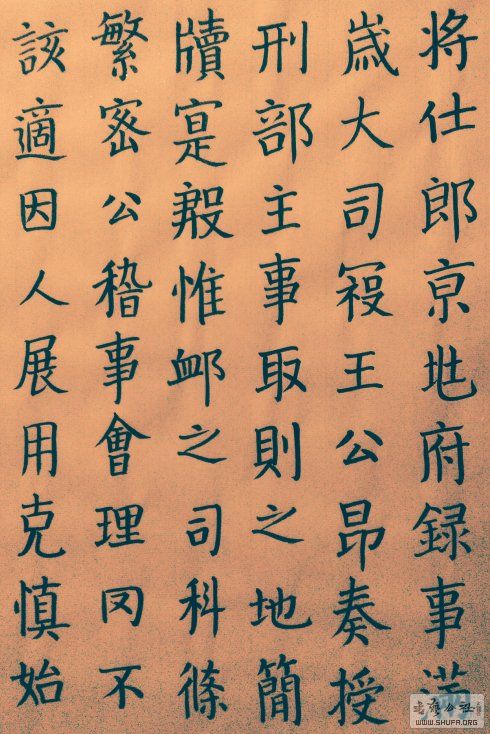 将仕郎亰兆府録事
歳大司寇王公昂奏授
刑部主事取則之地簡
牘寔殷惟卹之司科條
繁密公稽事會理罔不
該適因人展用克慎始
WWW.SHUFA.ORG